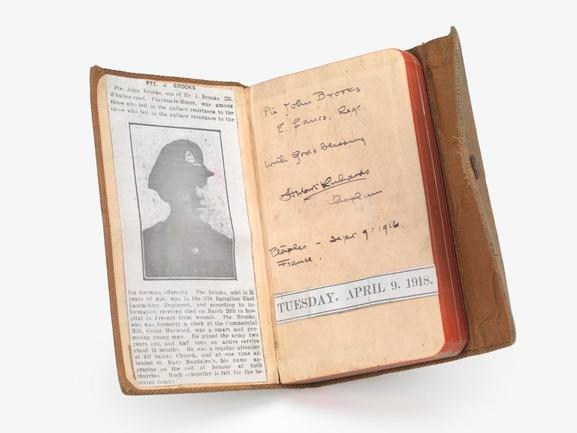 PTE. J. BROOKS.
Pte. John Brooks, son of Mr. J. Brooks 250,
Whalley-road, Clayton-le-Moors, was among
those who fell in the gallant resistance to the
those who fell in the gallant resistance to the
big German offensive. Pte. Brooks, who is 26
years of age, was in the 11th Battalion East
Lancashire Regiment, and according to in-
formation received died on March 28th in hos-
pital in France from wounds. Pte. Brooks,
who was formerly a clerk at the Commercial
Mill, Great Harwood, was a smart and pro-
mising young man. He joined the army two
years ago, and had been on active service
about 18 months. He was a regular attender
at All Saints' Church, and at one time at-
tended St. Mary Magdalen's, his name ap-
pearing on the roll of honour at both
churches. Much sympathy is felt for the be-
reaved family.
Pte John Brooks
E. Lancs. Regt.
With God's blessing
Richards
Chaplain
Etaples - Sept 9: 1916.
France.
TUESDAY, APRIL 9, 1918.